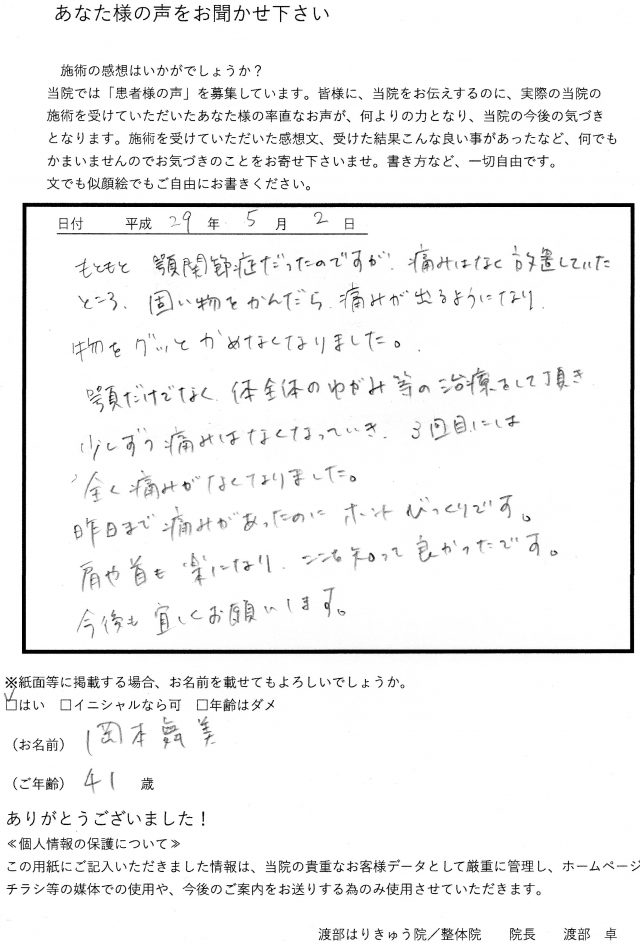 あなた様の声をお聞かせ下さい
施術の感想はいかがでしょうか？
当院では「患者様の声」を募集しています。皆様に、当院をお伝えするのに、実際の当院の
施術を受けていただいたあなた様の率直なお声が、何よりの力となり、当院の今後の気づき
となります。施術を受けていただいた感想文、受けた結果こんな良い事があったなど、何でも
かまいませんのでお気づきのことをお寄せ下さいませ。書き方など、一切自由です。
文でも似顔絵でもご自由にお書きください。
日付　平成 29 年 5 月 2 日
もともと 顎関節症だったのですが、痛みはなく放置していた
ところ、固い物をかんだら、痛みが出るようになり、
物をグッとかめなくなりました。
顎だけでなく、体全体のゆがみ等の治療をして頂き
少しずつ痛みはなくなっていき、3回目には
全く痛みがなくなりました。
昨日まで痛みがあったのに ホントびっくりです。
肩や首も楽になり、ここを知って良かったです。
今後も宜しくお願いします。
※紙面等に掲載する場合、お名前を載せてもよろしいでしょうか。
☑はい　□イニシャルなら可　□年齢はダメ
（お名前） 岡本舞美
（ご年齢） 41 歳
ありがとうございました！
≪個人情報の保護について≫
この用紙にご記入いただきました情報は、当院の貴重なお客様データとして厳重に管理し、ホームページ
チラシ等の媒体での使用や、今後のご案内をお送りする為のみ使用させていただきます。
渡部はりきゅう院／整体院　院長　渡部　卓